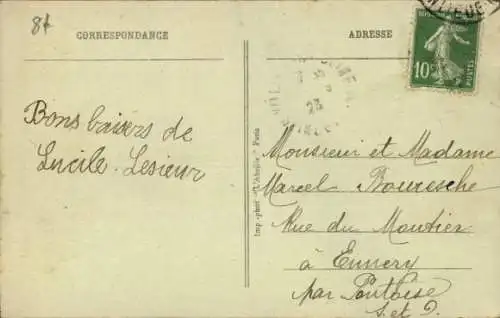 8f
CORRESPONDANCE
ADRESSE
10
POSTES
23
Bons baisers de
Lucile Lesieur
Imp.-phot "L'Abeille" Paris
Monsieur et Madame
Marcel Bouresche
Rue du Moutier
à Ennery
par Pontoise
S. et O.